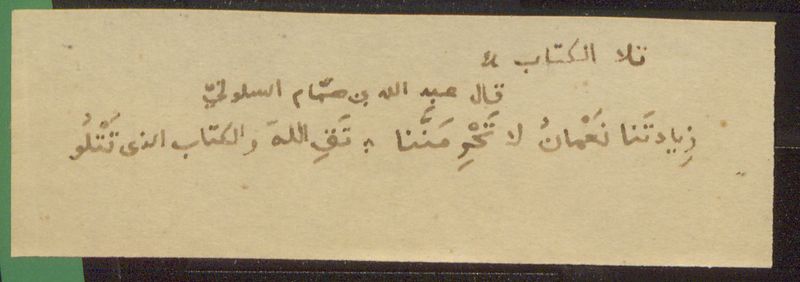 تلا الكتاب
قال عبد الله بن همّام السلوليّ
زِيادتَنا نَعْمانُ لا تَحْرِمَنَّنا ؞ تَقِ اللهَ والكتاب الذى تَتْلُو